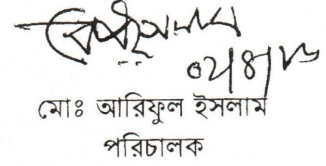 ০২/৪/১৮
মোঃ আরিফুল ইসলাম
পরিচালক